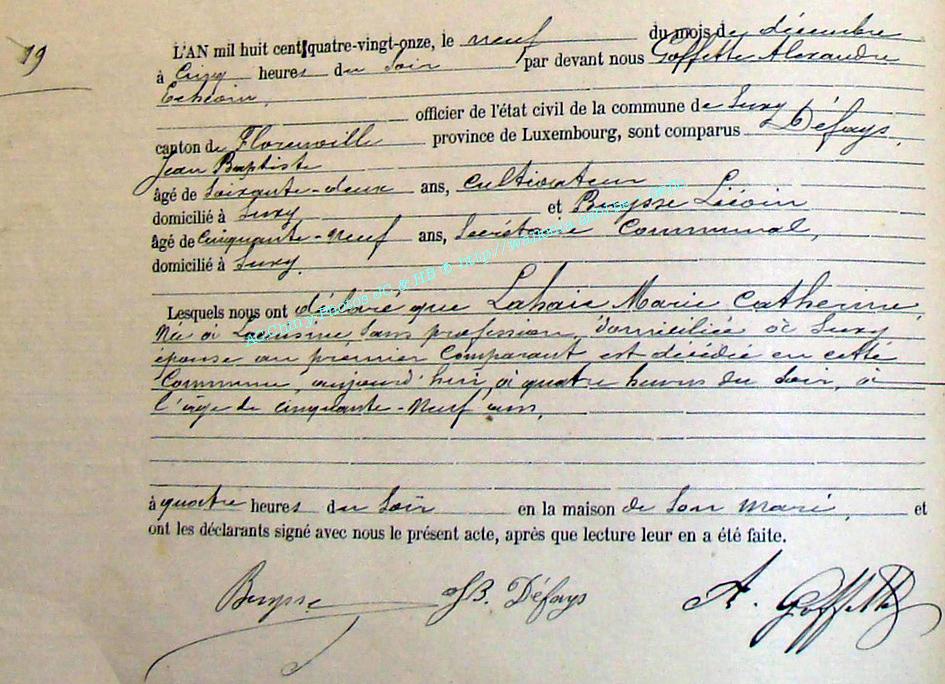 19
L'AN mil huit cent quatre-vingt-onze, le neuf du mois de décembre
à Cinq heures du Soir par devant nous Goffette Alexandre
Echevin,
officier de l'état civil de la commune de Suxy
canton de Florenville province de Luxembourg, sont comparus Défays,
Jean Baptiste
âgé de Soixante-deux ans, Cultivateur
domicilié à Suxy et Buysse Liévin
âgé de Cinquante-Neuf ans, Secrétaire Communal,
domicilié à Suxy.
Lesquels nous ont déclaré que Lahaie Marie Catherine,
Née à Sans profession, domiciliée à Suxy
épouse au premier Comparant est décédée en cette
Commune, aujourd'hui, à quatre heures du Soir, à
l'âge de cinquante-Neuf ans,
à quatre heures du Soir en la maison de Son Mari, et
ont les déclarants signé avec nous le présent acte, après que lecture leur en a été faite.
Buysse JB. Défays A. Goffette